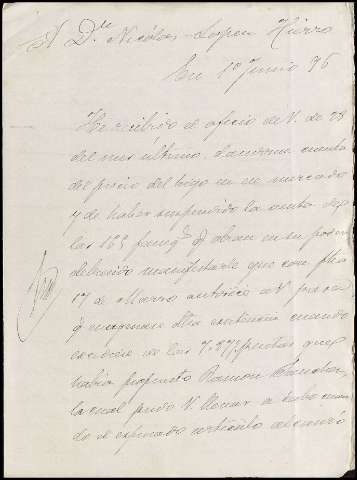 A Dn Nicolas Lopez Hierro
En 1º Junio 76
He recibido el oficio de V. de 28
del mes ultimo, dandome cuenta
del precio del trigo en ese mercado
y de haber suspendido la venta de
las 165 fangs q obran en su poder
debiendo manifestarle que con fha
17 de Marzo autorizó a V para
q enagenara dha existencia cuando
escediese de las 7.87½ pesetas que
habia propuesto Ramon
la cual pudo V. llevar a cabo cuan
do el espresado articulo alcanzó